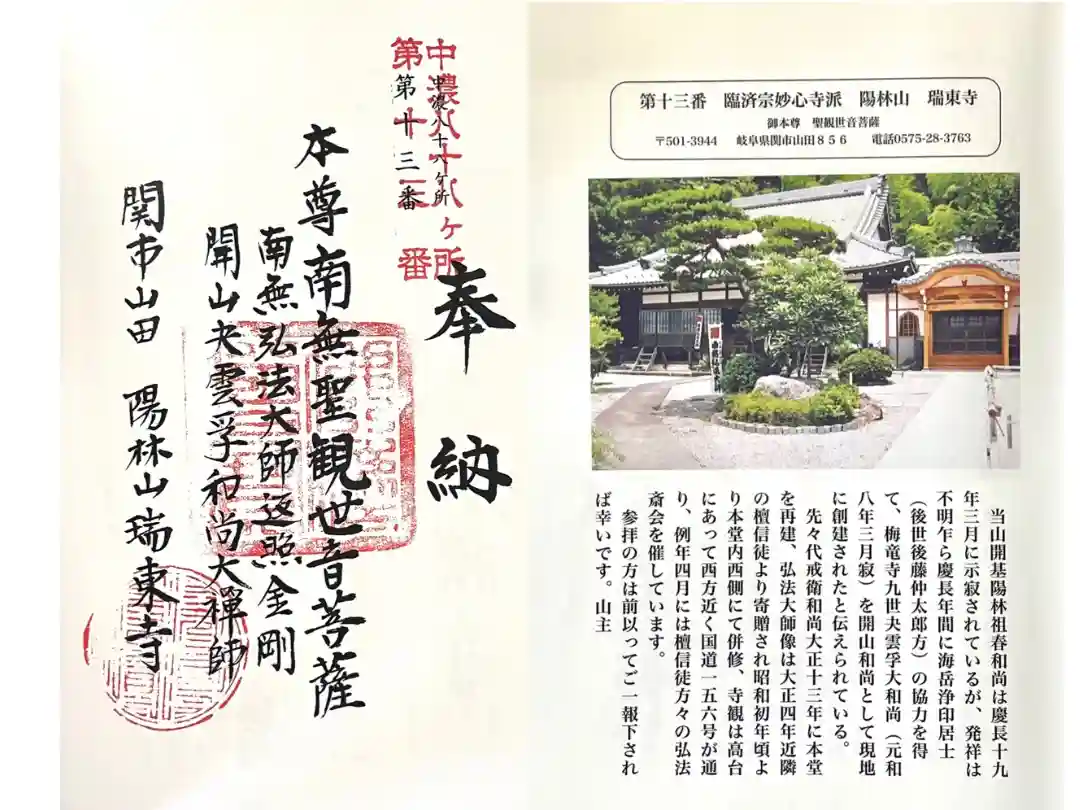 第十三番 臨済宗妙心寺派 陽林山 瑞東寺
御本尊 聖観世音菩薩
〒501-3944 岐阜県関市山田８５６ 電話0575-28-3763
当山開基陽林祖春和尚は慶長十九
年三月に示寂されているが、発祥は
不明乍ら慶長年間に海岳浄印居士
（後世後藤仲太郎方）の協力を得
て、梅竜寺九世夬雲孚大和尚（元和
八年三月寂）を開山和尚として現地
に創建されたと伝えられている。
先々代戒衛和尚大正十三年に本堂
を再建、弘法大師像は大正四年近隣
の檀信徒より寄贈され昭和初年頃よ
り本堂内西側にて併修、寺観は高台
にあって西方近く国道一五六号が通
り、例年四月には檀信徒方々の弘法
斎会を催しています。
参拝の方は前以ってご一報下され
ば幸いです。山主
中濃八十八ヶ所
第十三番
中濃八十八ヶ所
第十三番
奉納
本尊南無聖観世音菩薩
南無弘法大師返照金剛
開山夬雲孚和尚大禪師
関市山田 陽林山瑞東寺